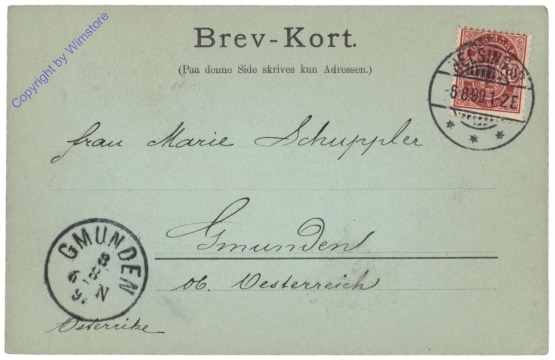 Copyright by Wimstore
Brev-Kort.
(Paa denne Side skrives kun Adressen.)
HELSINGØR
-8.8.99.1-2E
Frau Marie Schuppler
Gmunden
ob. Oesterreich
GMUNDEN
N
Österrike